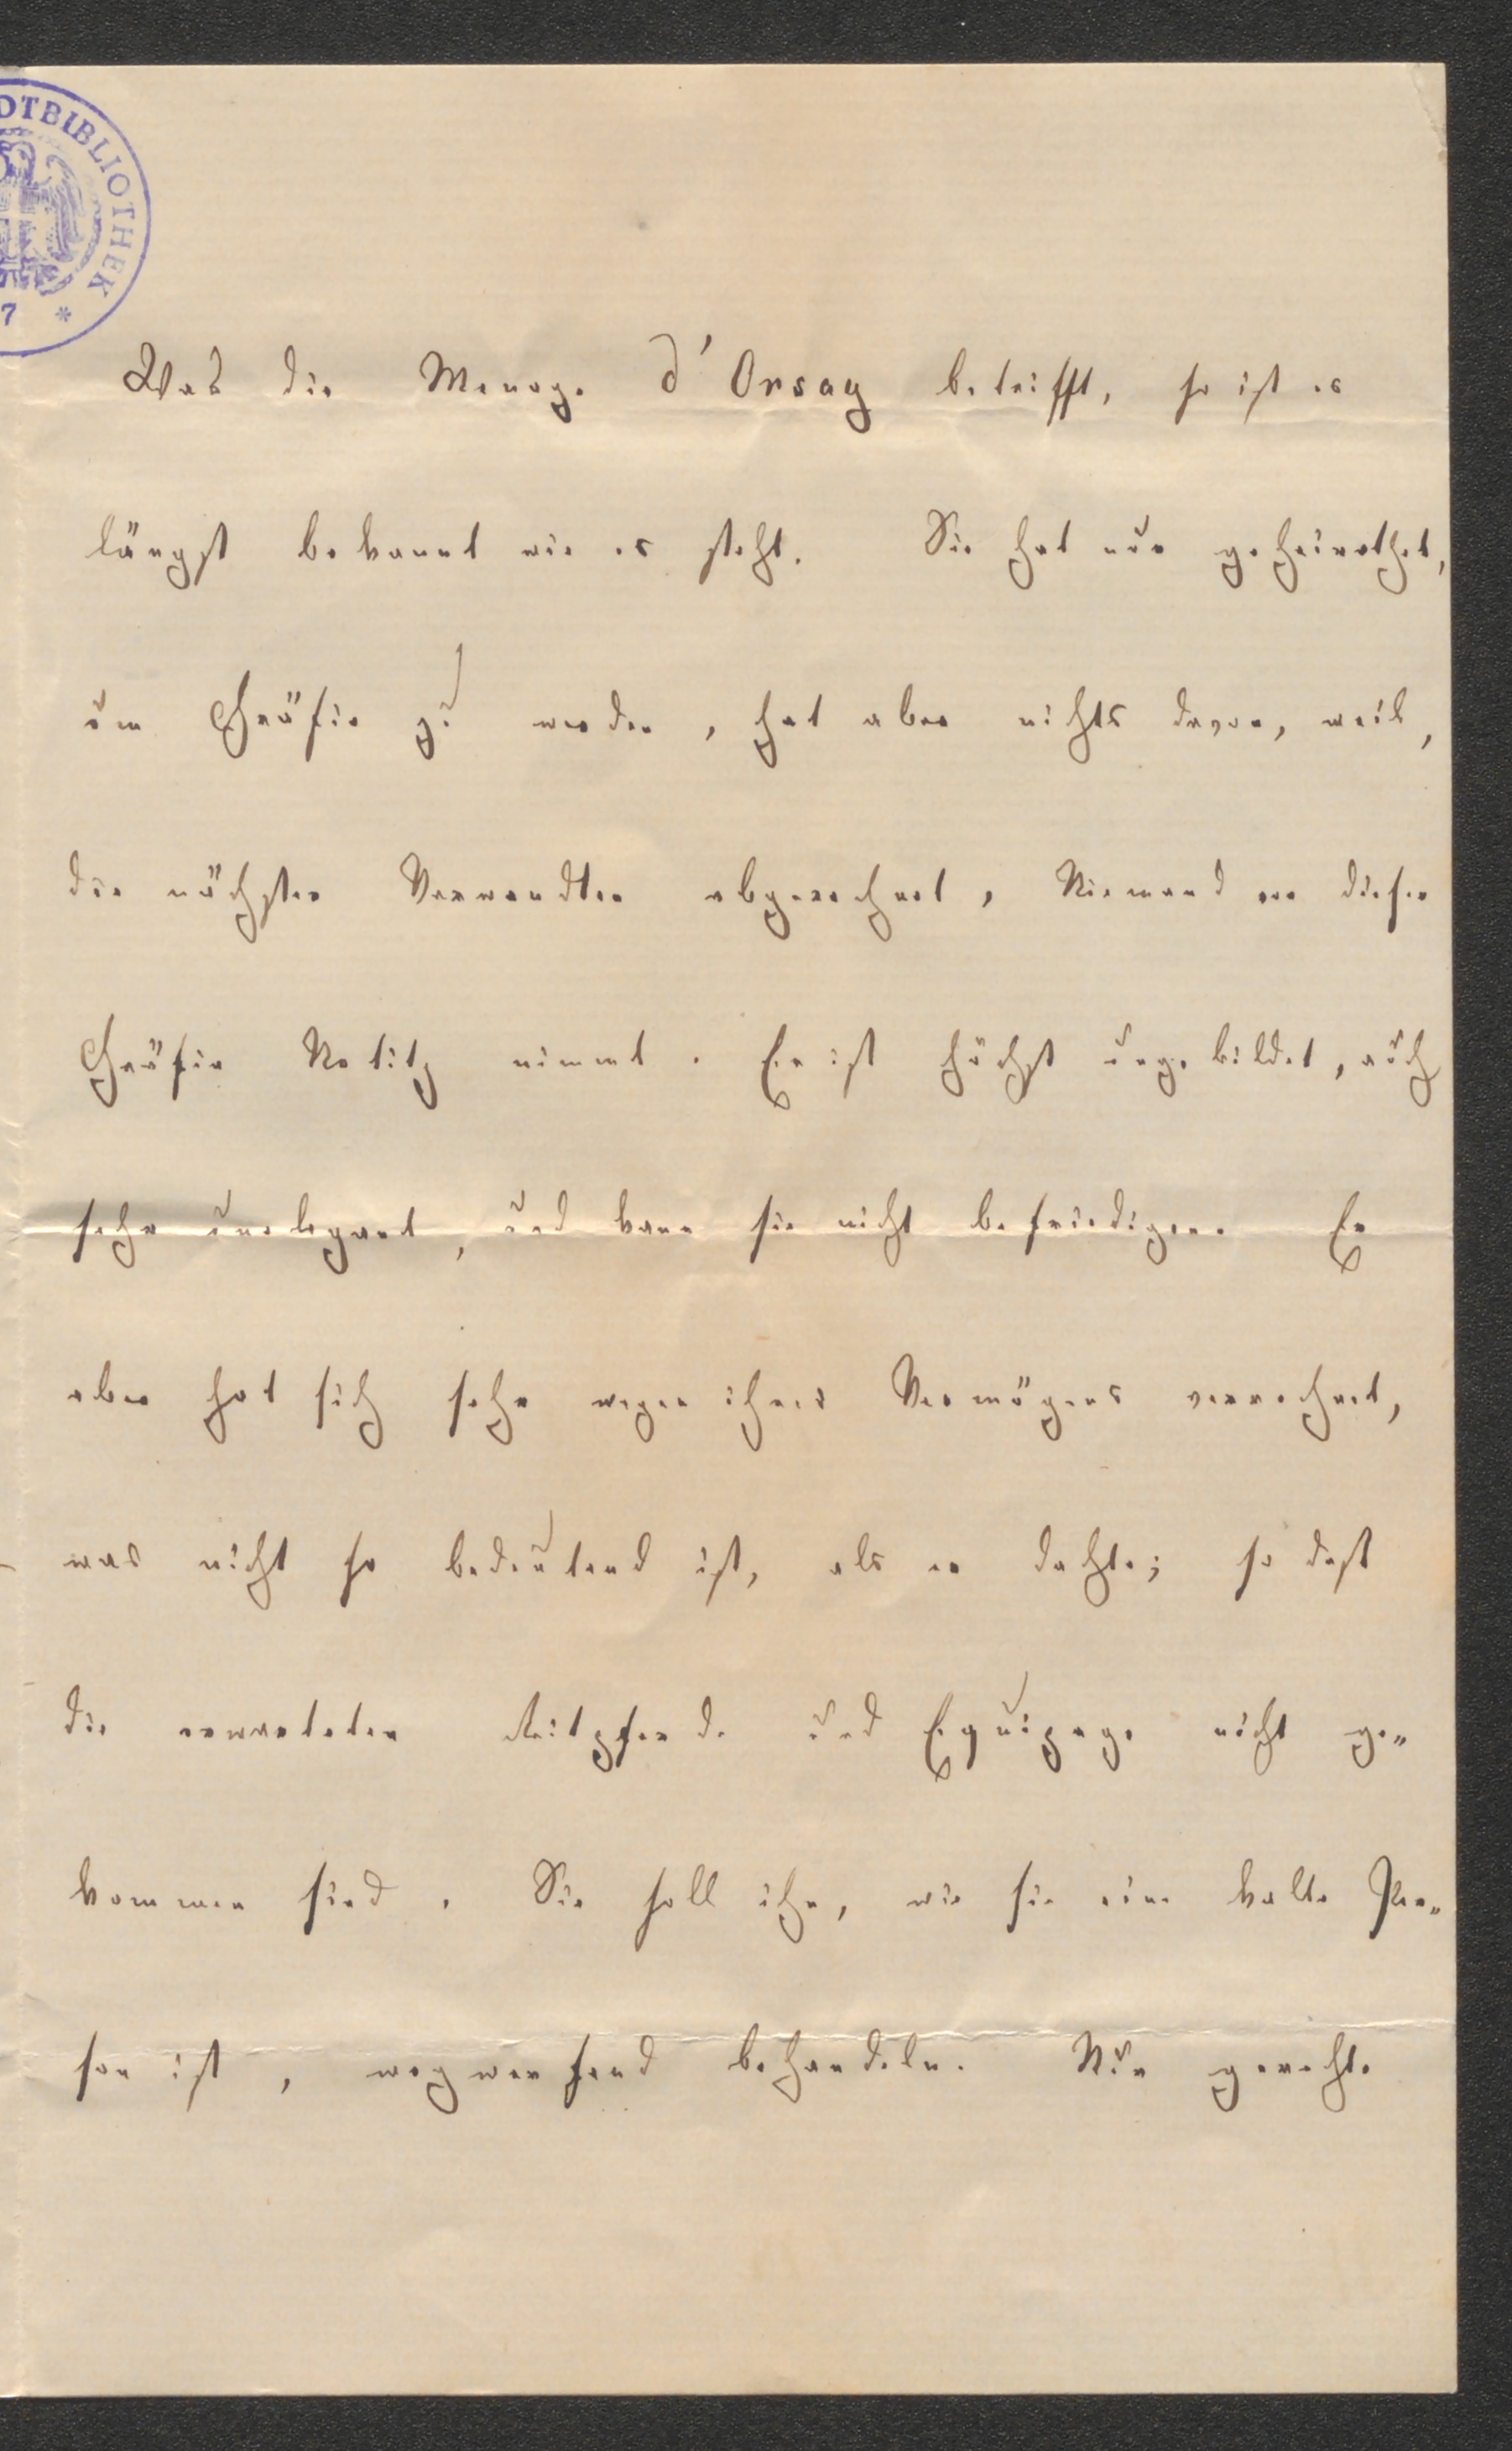 DTBIBLIOTHEK
7 *
Was die Menage d'Orsay betrifft, so ist es
längst bekannt wie es steht. Sie hat nur geheirathet,
um Gräfin zu werden, hat aber nichts davon, weil,
die nächsten Verwandten abgerechnet, Niemand von dieser
Gräfin Notitz nimmt. Er ist höchst ungebildet, auch
sehr unelegant, und kann sie nicht befriedigen. Er
aber hat sich sehr wegen ihres Vermögens verrechnet,
was nicht so bedeutend ist, als er dachte; so daß
die erwarteten Reitpferde und Equipage nicht ge„
kommen sind. Sie soll ihn, wie sie eine kalte Per„
son ist, wegwerfend behandeln. Nur gerechte